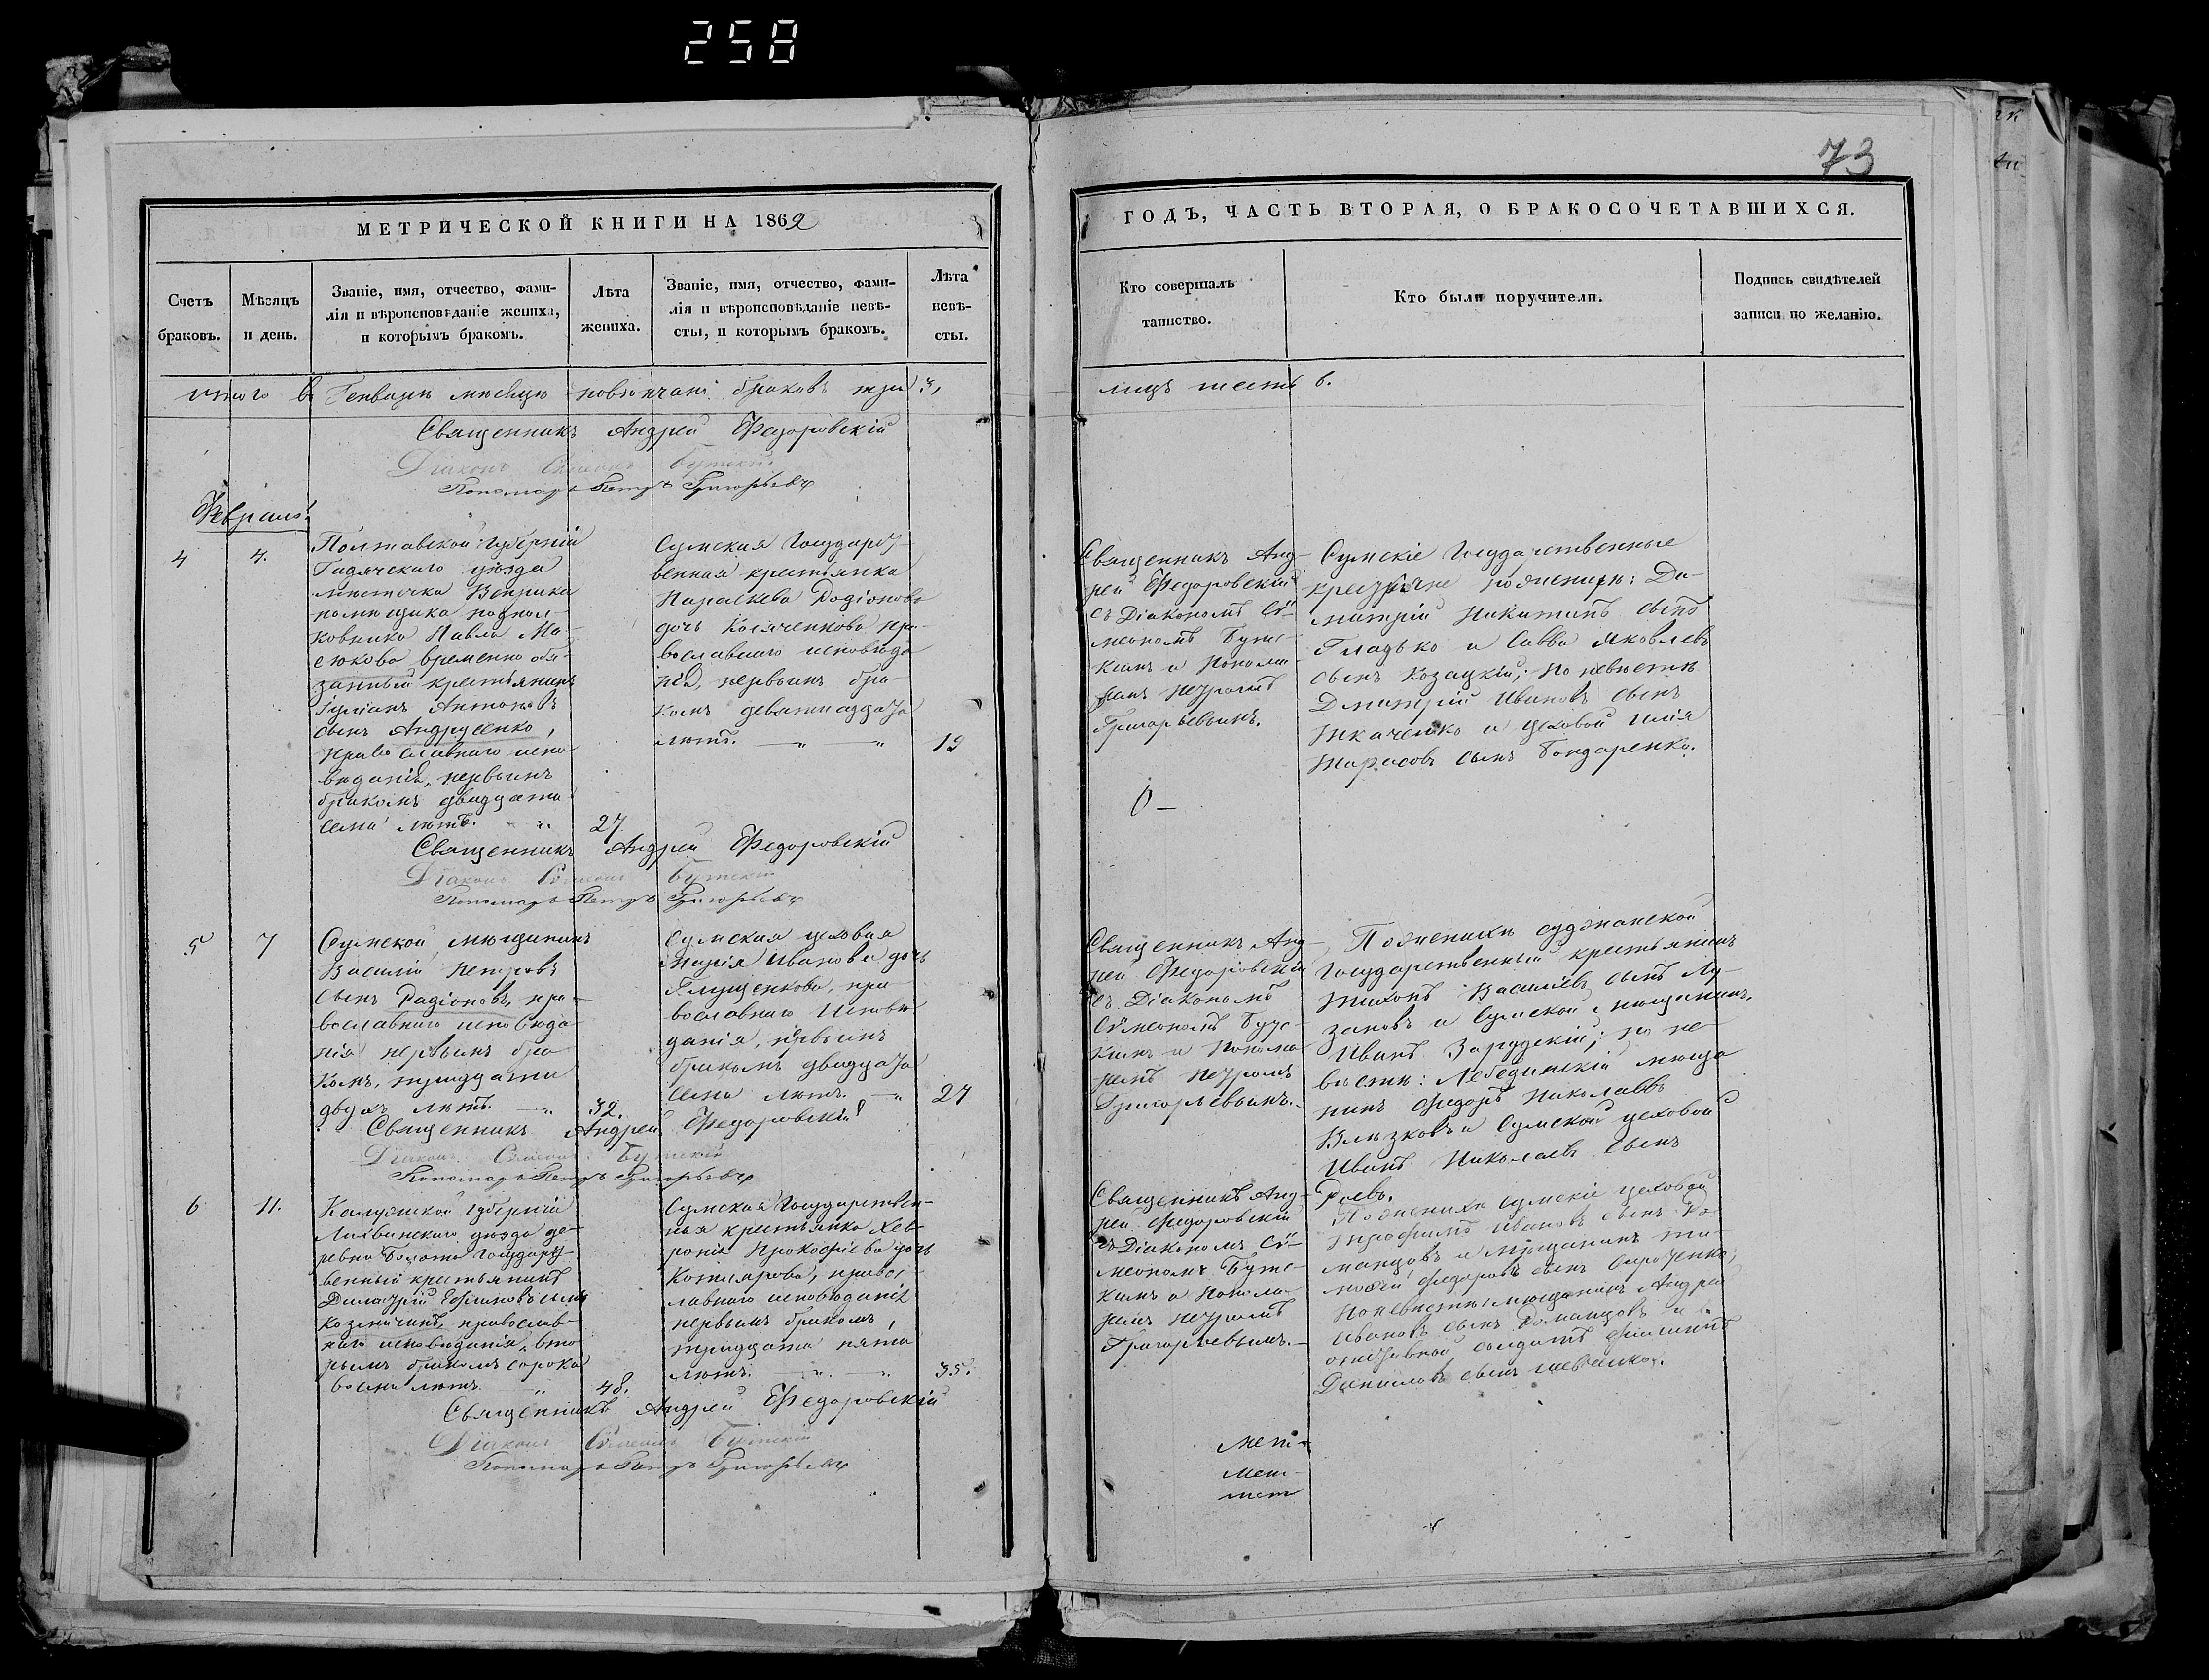 258
73
МЕТРИЧЕСКОЙ КНИГИ НА 1862
ГОДЪ, ЧАСТЬ ВТОРАЯ, О БРАКОСОЧЕТАВШИХСЯ.
Счетъ
браковъ.
Мѣсяцъ
и день.
Званіе, имя, отчество, фами-
лія и вѣроисповѣданіе жениха,
и которымъ бракомъ.
Лѣта
жениха.
Званіе, имя, отчество, фами-
лія и вѣроисповѣданіе невѣ-
сты, и которымъ бракомъ.
Лѣта
невѣ-
сты.
Кто совершалъ
таинство.
Кто были поручители.
Подпись свидѣтелей
записи по желанію.
итого въ Генварѣ мѣсяцѣ повѣнчано браковъ три 3,
лицъ шесть 6.
Священникъ Андрей Федоровскій
Діаконъ Сѵмеонъ Бутскій
Пономарь Петръ Григорьевъ
Февраль.
4
4.
Полтавской Губерніи
Гадячскаго уѣзда
мѣстечка Веприка
помѣщика подпол-
ковника Павла Ма-
сюкова временно обя-
занный крестьянинъ
Іуліанъ Антоновъ
сынъ Андрусенко,
православнаго испо
вѣданія, первымъ
бракомъ двадцати
семи лѣтъ.
27.
Сумская Государ
венная крестьянка
Параскева Родіонова
дочь Косяченкова пра-
вославнаго исповѣда
нія, первымъ бра-
комъ девятнадцати
лѣтъ.
19
Священникъ Анд-
рей Федоровскій
съ Діакономъ Сѵ-
меономъ Бутс-
кимъ и Понома
ремъ Петромъ
Григорьевымъ.
Сумскіе Государственные
крестьяне по женихѣ: Ди-
митрій Никитинъ сынъ
Гладько и Савва Яковлевъ
сынъ Козацкій; по невѣстѣ
Дмитрій Ивановъ сынъ
Ткаченко и цеховой Илія
Тарасовъ сынъ Бондаренко.
Священникъ Андрей Федоровскій
Діаконъ Сѵмеонъ Бутскій
Пономарь Петръ Григорьевъ
5
7
Сумской мѣщанинъ
Василій Петровъ
сынъ Радіоновъ, пра-
вославнаго исповѣда
нія первымъ бра
комъ, тридцати
двухъ лѣтъ.
32.
Сумская цеховая
Марія Иванова дочь
Глущенкова, пра
вославнаго Исповѣ
данія, первымъ
бракомъ двадцати
семи лѣтъ.
27
Священникъ Анд-
рей Федоровскій
съ Діакономъ
Сѵмеономъ Бутс-
кимъ и Понома
ремъ Петромъ
Григорьевымъ.
По женихѣ суджанской
Государственный крестьянинъ
Тихонъ Василіевъ сынъ Лу-
зановъ и Сумской мѣщанинъ
Иванъ Зарудскій; по не-
вѣстѣ: Лебединскій мѣща
нинъ Федоръ Николаевъ
и Сумской цеховой
Иванъ Николаевъ сынъ
Роевъ.
Священникъ Андрей Федоровскій
Діаконъ Сѵмеонъ Бутскій
Пономарь Петръ Григорьевъ
6
11.
Калужской Губерніи
Лихвинскаго уѣзда де-
ревни Болота Государ
венный крестьянинъ
Димитрій Ефимовъ сынъ
православ-
наго исповѣданія, вто
рымъ бракомъ сорока
восьми лѣтъ.
48.
Сумская Государствен-
ная крестьянка Хев-
ронія Прокофіева дочь
Котлярова, правос
лавнаго исповѣданія
первымъ бракомъ,
тридцати пяти
лѣтъ.
35.
Священникъ Анд-
рей Федоровскій
съ Діакономъ Сѵ-
меономъ Бутс-
кимъ и Понома
ремъ Петромъ
Григорьевымъ.
По женихѣ сумскіе цеховой
Трофимъ Ивановъ сынъ Ро
манцовъ и мѣщанинъ Ти-
мофей Федоровъ сынъ Сироченко;
По невѣстѣ: мѣщанинъ Андрей
Ивановъ сынъ Романцовъ и
отставной солдатъ Филиппъ
Даниловъ сынъ Шевченко.
Священникъ Андрей Федоровскій
Діаконъ Сѵмеонъ Бутскій
Пономарь Петръ Григорьевъ